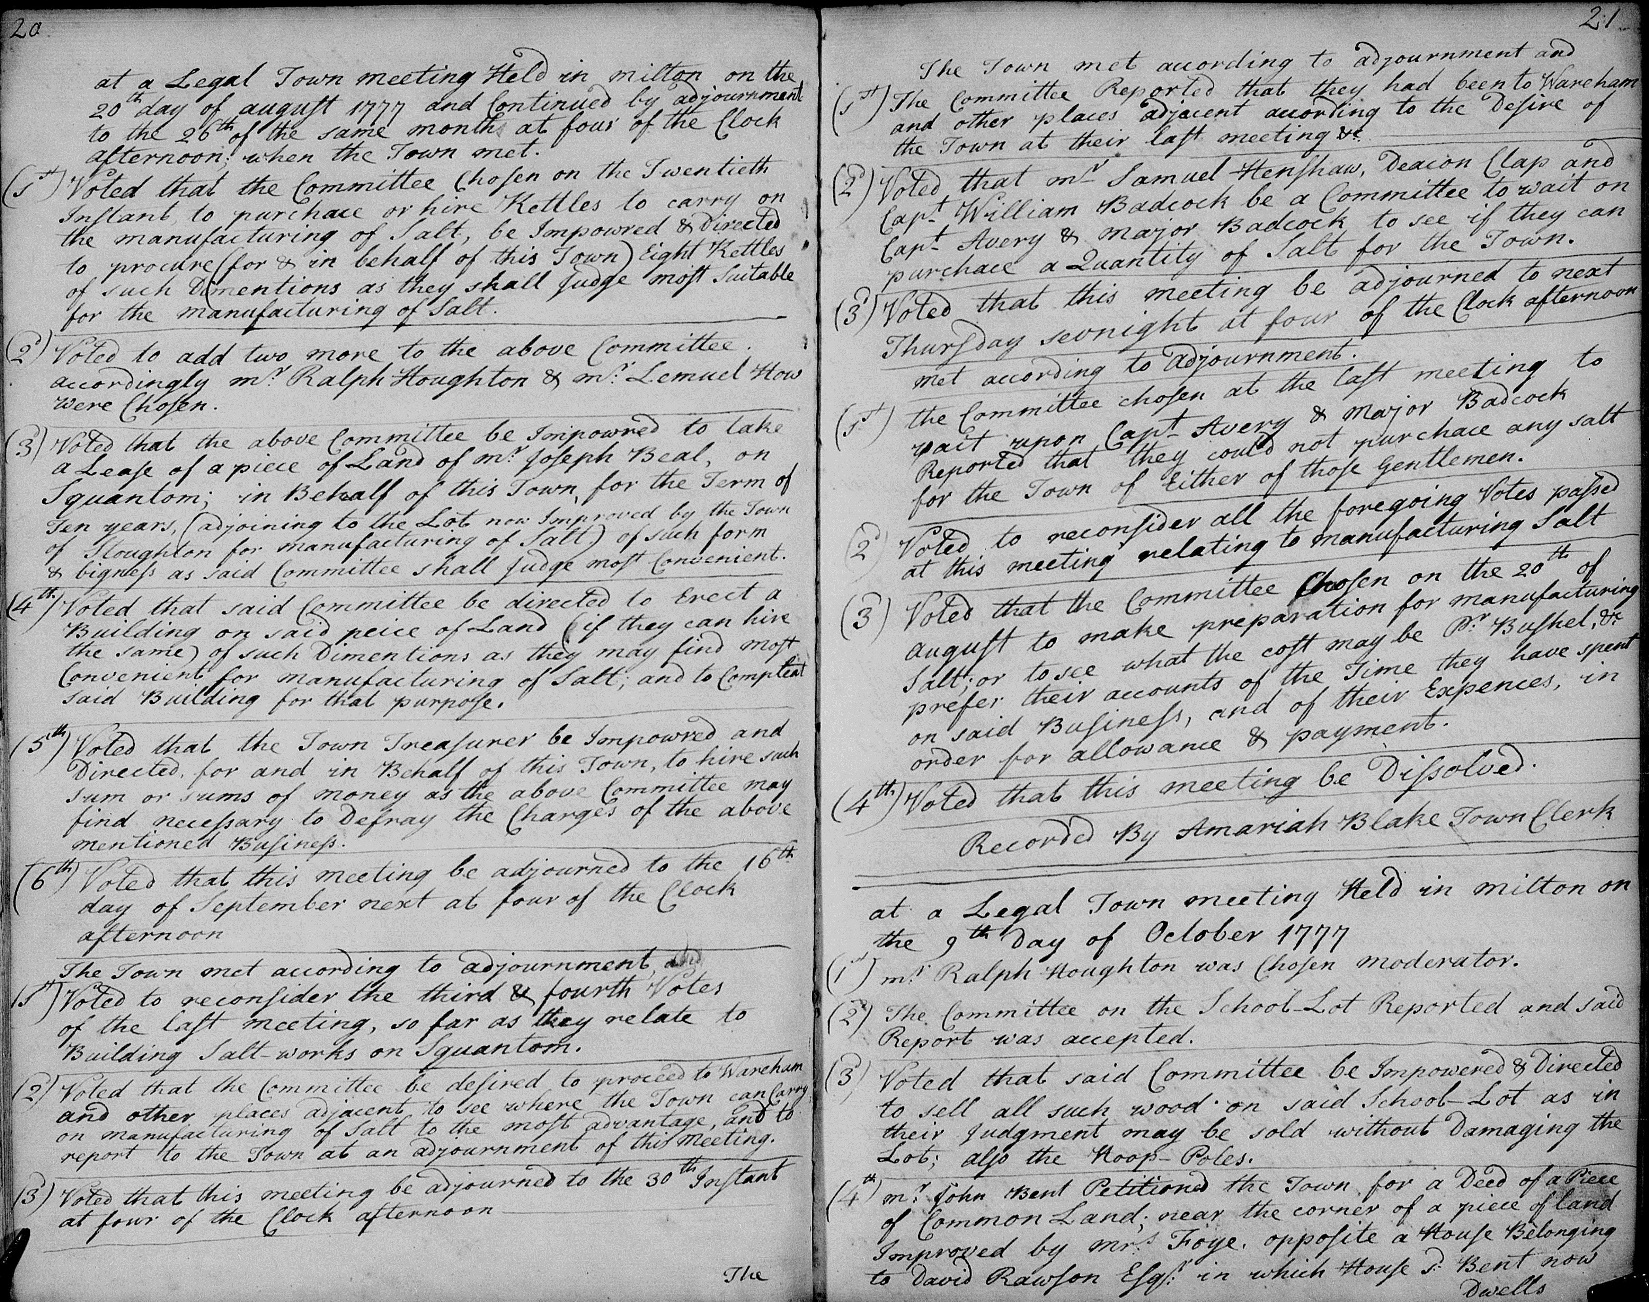 20
at a Legal Town meeting Held in milton on the
20th day of august 1777 and Continued by adjournment
to the 26th of the same month at four of the Clock
afternoon; when the Town met.
(1st) Voted that the Committee Chosen on the Twentieth
Instant to purchace or hire Kettles to carry on
the manufacturing of Salt, be Impowred & Directed
to procure (for & in behalf of this Town) Eight Kettles
of such Dimentions as they shall Judge most Suitable
for the manufacturing of Salt.
(2d) Voted to add two more to the above Committee.
accordingly mr. Ralph Houghton & mr. Lemuel How
were Chosen.
(3) Voted that the above Committee be Impowred to take
a Lease of a piece of Land of mr. Joseph Beal, on
Squantom; in Behalf of this Town, for the Term of
Ten years, (adjoining to the Lot now Improved by the Town
of Stoughton for manufacturing of Salt) of such form
& bigness as said Committee shall Judge most Convenient.
(4th) Voted that said Committee be directed to Erect a
Building on said peice of Land (if they can hire
the same) of such Dimentions as they may find most
Convenient for manufacturing of Salt; and to Compleat
said Building for that purpose.
(5th) Voted that the Town Treasurer be Impowred and
Directed, for and in Behalf of this Town, to hire such
sum or sums of money as the above Committee may
find necessary to Defray the Charges of the above
mentioned Business.
(6th) Voted that this meeting be adjourned to the 16th
day of September next at four of the Clock
afternoon
The Town met according to adjournment, and
(1st) Voted to reconsider the third & fourth Votes
of the last meeting, so far as they relate to
Building Salt-works on Squantom.
(2) Voted that the Committee be desired to proceed to Wareham
and other places adjacent to see where the Town can Carry
on manufacturing of Salt to the most advantage, and to
report to the Town at an adjournment of this meeting.
(3) Voted that this meeting be adjourned to the 30th Instant
at four of the Clock afternoon
The
21
The Town met according to adjournment and
(1st) The Committee Reported that they had been to Wareham
and other places adjacent according to the Desire of
the Town at their last meeting &c
(2d) Voted that mr. Samuel Henshaw, Deacon Clap and
Capt. William Badcock be a Committee to wait on
Capt. Avery & major Badcock to see if they can
purchace a Quantity of Salt for the Town.
(3) Voted that this meeting be adjourned to next
Thursday sevnight at four of the Clock afternoon
met according to adjournment.
(1st) the Committee chosen at the last meeting to
wait upon Capt. Avery & major Badcock
Reported that they could not purchace any salt
for the Town of Either of those Gentlemen.
(2d) Voted to reconsider all the foregoing Votes passed
at this meeting relating to manufacturing Salt
(3) Voted that the Committee Chosen on the 20th of
august to make preparation for manufacturing
Salt; or to see what the cost may be Pr. Bushel, &c
prefer their accounts of the Time they have spent
on said Business, and of their Expences, in
order for allowance & payment.
(4th) Voted that this meeting be Dissolved.
Recorded By Amariah Blake Town Clerk
at a Legal Town meeting Held in milton on
the 9th Day of October 1777
(1st) mr. Ralph Houghton was Chosen moderator.
(2d) The Committee on the School-Lot Reported and said
Report was accepted.
(3) Voted that said Committee be Impowered & Directed
to sell all such wood on said School-Lot as in
their Judgment may be sold without Damaging the
Lot; also the Hoop-Poles.
(4th) mr. John Bent Petitioned the Town for a Deed of a Piece
of Common Land; near the corner of a piece of land
Improved by mrs. Foye, opposite a House Belonging
to David Rawson Esqr. in which House sd. Bent now
Dwells